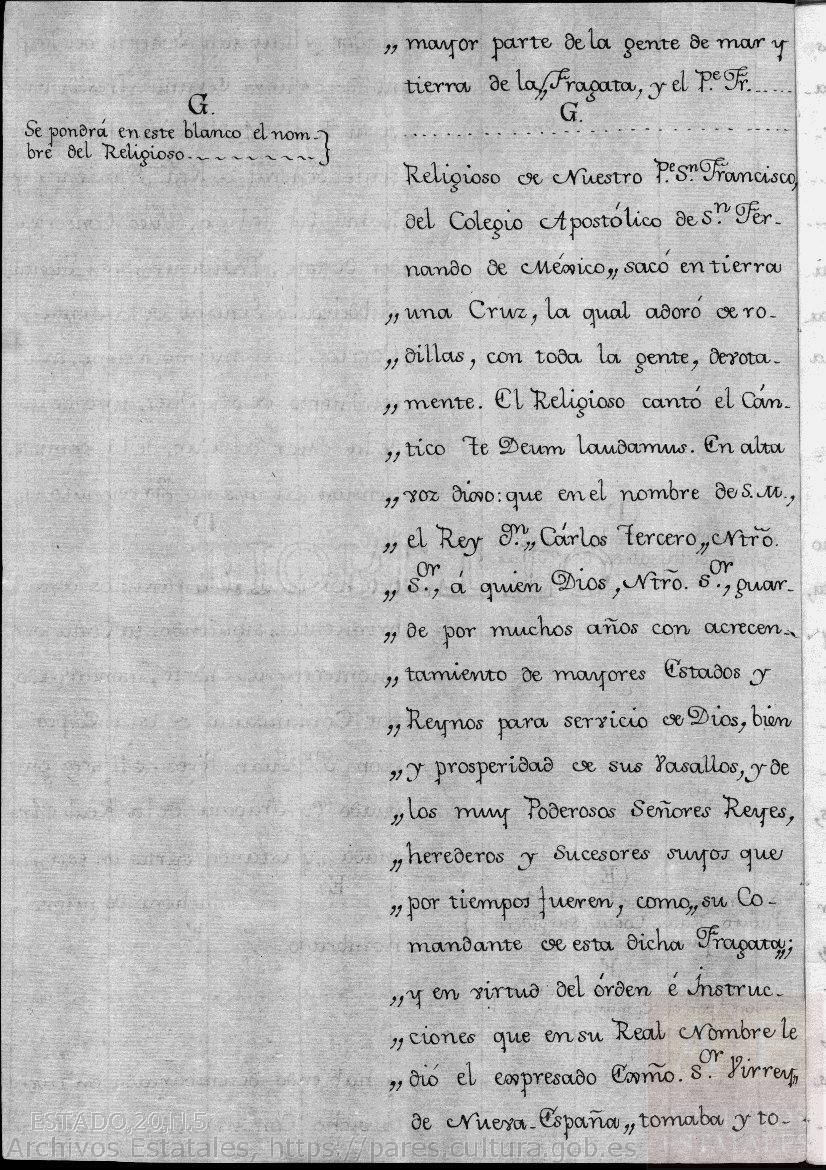 „ mayor parte de la gente de mar y
tierra de la„ Fragata, y el P.e Fr......
G.
G.
Se pondrá en este blanco el nom-
bre del Religioso.........
Religioso de Nuestro P.e S.n Francisco,
del Colegio Apostólico de S.n Fer-
nando de México„ sacó en tierra
„ una Cruz, la qual adoró de ro-
„ dillas, con toda la gente, devota-
„ mente. El Religioso cantó el Cán-
„ tico Te Deum laudamus. En alta
„ voz dixo: que en el nombre de S. M.,
„ el Rey d.n „ Cárlos Tercero„ Ntrõ.
„ S.or, á quien Dios, Ntrõ. S.or, guar-
„ de por muchos años con acrecen-
„ tamiento de mayores Estados y
„ Reynos para servicio de Dios, bien
„ y prosperidad de sus Vasallos, y de
„ los muy Poderosos Señores Reyes,
„ herederos y Sucesores suyos que
„ por tiempos fueren, como„ su Co-
mandante de esta dicha Fragata„;
„ y en virtud del órden é Instruc-
„ ciones que en su Real Nombre le
„ dió el expresado Exmõ. S.or Virrey„
de Nueva-España„ tomaba y to-
ESTADO,20,N.5
Archivos Estatales, https://pares.cultura.gob.es